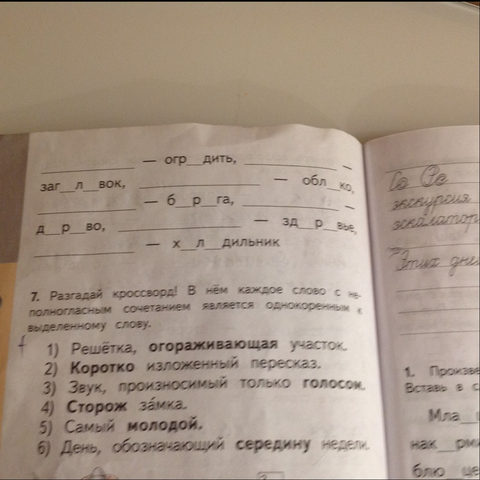 ____ — огр__дить, ____ —
заг__л__вок, ____ — обл__ко,
____ — б__р__га, ____ —
д__р__во, ____ — зд__р__вье,
____ — х__л__дильник
7. Разгадай кроссворд! В нём каждое слово с не-
полногласным сочетанием является однокоренным к
выделенному слову.
1) Решётка, огораживающая участок.
2) Коротко изложенный пересказ.
3) Звук, произносимый только голосом.
4) Сторож за́мка.
5) Самый молодой.
6) День, обозначающий середину недели.
Со Ре
экскурсия
эскалатор
Этих дне
1. Произве
Вставь в с
Мла
нак__рми
блю це